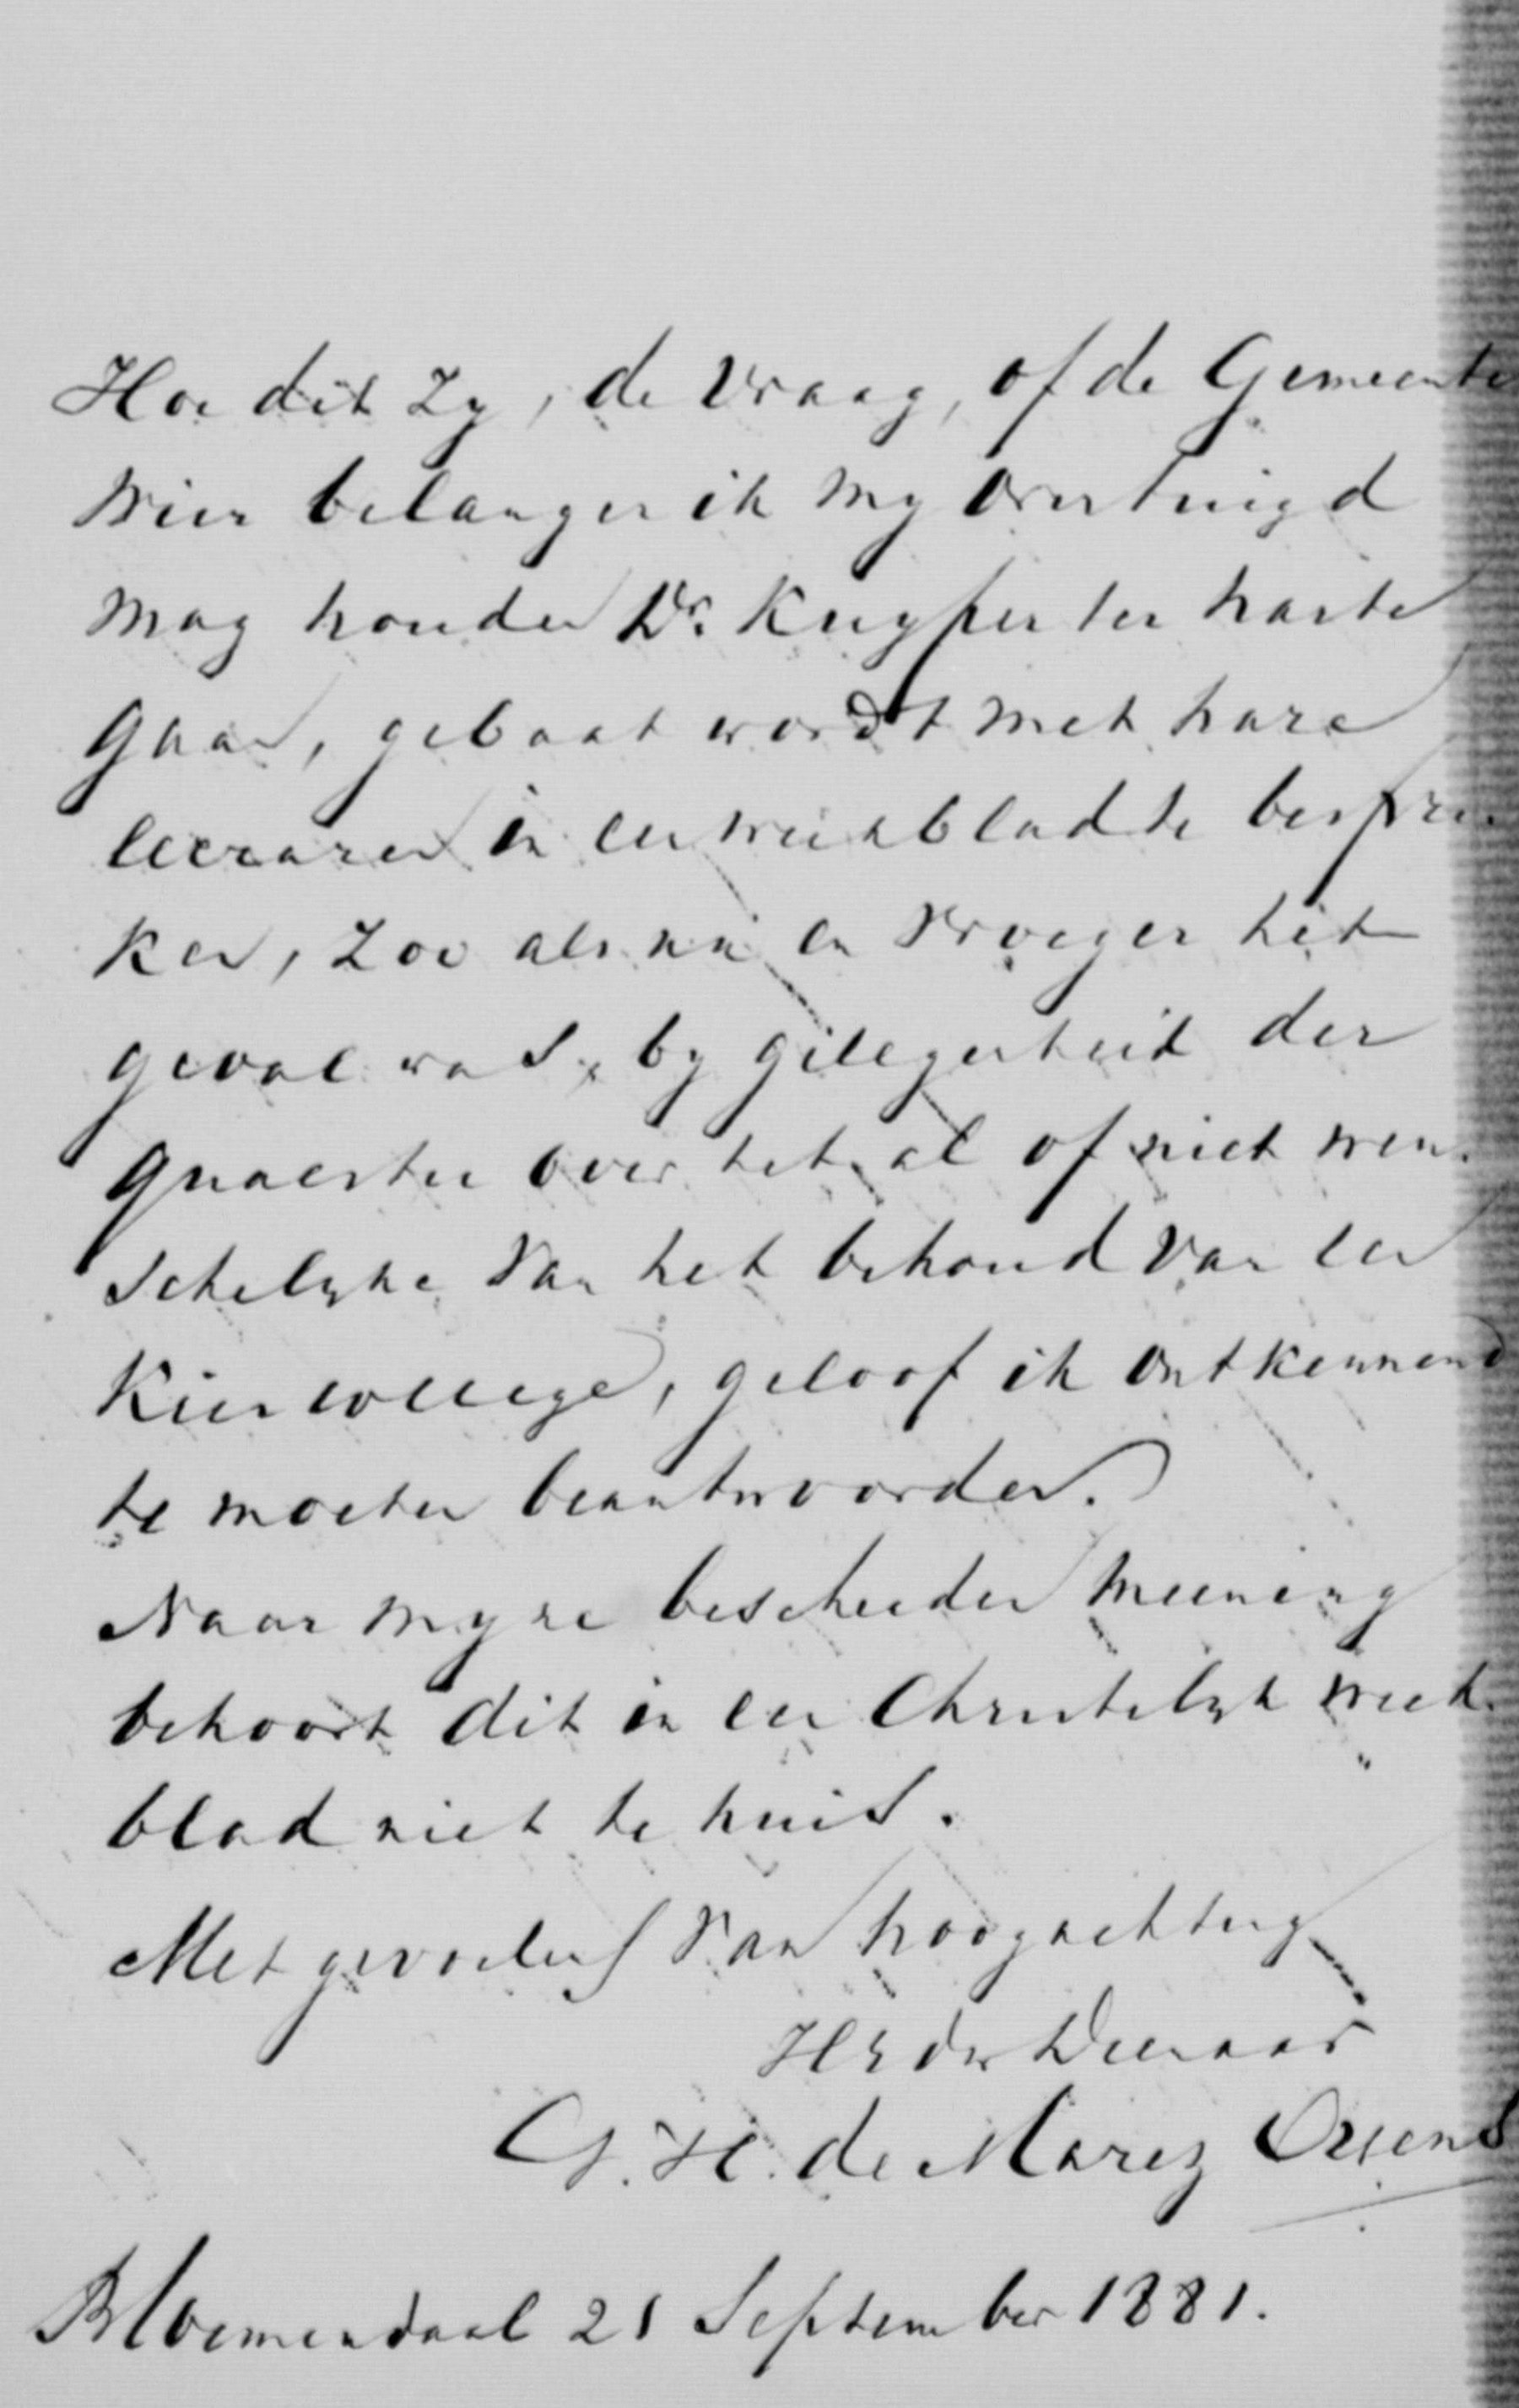 Hoe dit zy, de vraag, of de Gemeente
wier belangen ik my overtuigd
mag houden Dr. Kuyper ter harte
gaan, gebaat wordt met hare
leeraren in een weekblad te bespre-
ken, zoo als nu en vroeger het
geval was, by gelegenheid der
quaestie over het al of niet wen-
schelyke van het behoud van een
Kiescollege, geloof ik ontkennend
te moeten beantwoorden.
Naar myne bescheiden meening
behoort dit in een Christelyk week-
blad niet te huis.
Met gevoelens van hoogachting
Dienaar
G. H. de Marez Oyens
Bloemendaal 21 September 1881.